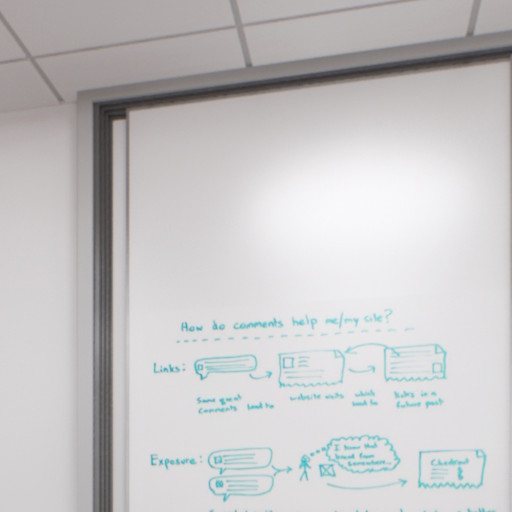 How do comments help me/my site?
Links:
Some great comments lead to
website visits
which lead to
links in a future post
Exposure:
I know that brand from somewhere...
Checkout